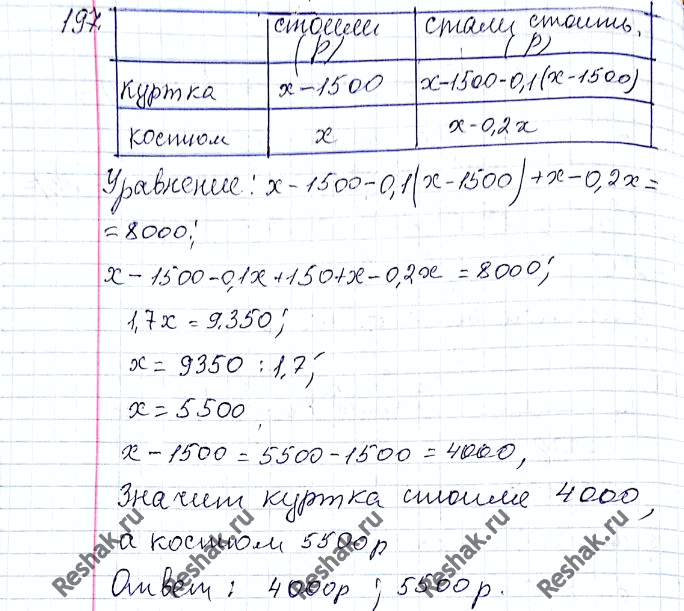 197.
стоили (р) стали стоить. (р)
куртка x-1500 x-1500-0,1(x-1500)
костюм x x-0,2x
Уравнение: x-1500-0,1(x-1500)+x-0,2x=
=8000;
x-1500-0,1x+150+x-0,2x=8000;
1,7x=9.350;
x=9350:1,7;
x=5500
x-1500=5500-1500=4000,
Значит куртка стоила 4000,
а костюм 5500р
Ответ: 4000р; 5500р.
Reshak.ru Reshak.ru Reshak.ru Reshak.ru